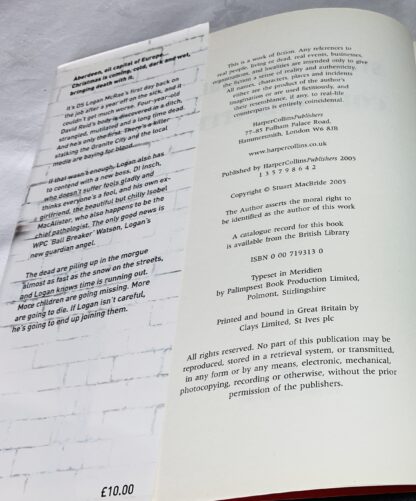 Aberdeen, oil capital of Europe.
Christmas is coming, cold, dark and wet,
bringing death with it.
It's DS Logan McRae's first day back on
the job after a year off on the sick, and it
couldn't get much worse. Four-year-old
David Reid's body is discovered in a ditch,
strangled, mutilated and a long time dead.
And he's only the first. There's a killer
stalking the Granite City and the local
media are baying for blood.
If that wasn't enough, Logan also has
to contend with a new boss, DI Insch,
who doesn't suffer fools gladly and
thinks everyone's a fool, and his own ex-
girlfriend, the beautiful but chilly Isobel
MacAlister, who also happens to be the
chief pathologist. The only good news is
WPC 'Ball Breaker' Watson, Logan's
new guardian angel.
The dead are piling up in the morgue
almost as fast as the snow on the streets,
and Logan knows time is running out.
More children are going missing. More
are going to die. If Logan isn't careful,
he's going to end up joining them.
£10.00
This is a work of fiction. Any references to
real people, living or dead, real events, businesses,
organizations, and localities are intended only to give
the fiction a sense of reality and authenticity.
All names, characters, places and incidents
are either the product of the author's
imagination or are used fictitiously, and
their resemblance, if any, to real-life
counterparts is entirely coincidental.
HarperCollinsPublishers
77–85 Fulham Palace Road,
Hammersmith, London W6 8JB
www.harpercollins.co.uk
Published by HarperCollinsPublishers 2005
1 3 5 7 9 8 6 4 2
Copyright © Stuart MacBride 2005
The Author asserts the moral right to
be identified as the author of this work
A catalogue record for this book
is available from the British Library
ISBN 0 00 719313 0
Typeset in Meridien
by Palimpsest Book Production Limited,
Polmont, Stirlingshire
Printed and bound in Great Britain by
Clays Limited, St Ives plc
All rights reserved. No part of this publication may be
reproduced, stored in a retrieval system, or transmitted,
in any form or by any means, electronic, mechanical,
photocopying, recording or otherwise, without the prior
permission of the publishers.